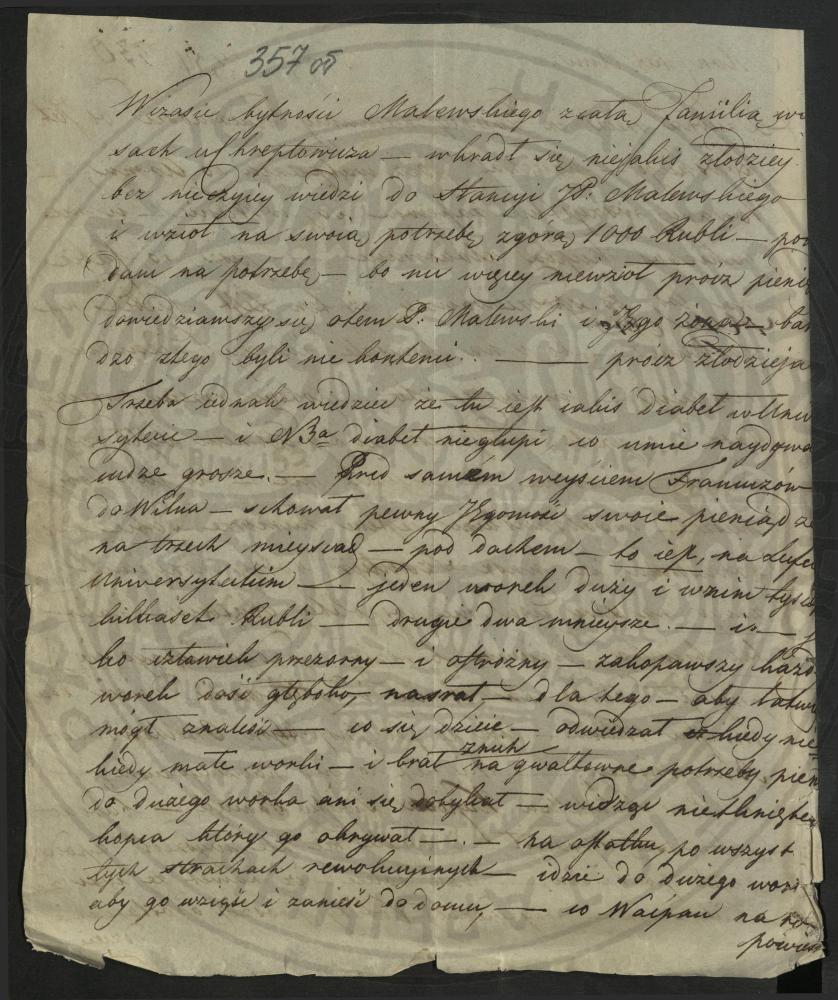 357
W czasie bytności Malewskiego z całą Familią w
sach u Chreptowicza — wkradł się niejakiś złodziey
bez niczyjey wiedzi do Stancyi JP: Malewskiego
i wzioł na swoią potrzebę zgórą 1000 Rubli — po
dam na potrzebę — bo nic więcey niewzioł prócz pieni
dowiedziawszy się otem P: Malewski i Jego żona — bar
dzo ztego byli nie kontenci. — prócz złodzieja
Trzeba iednak wiedzieć że tu iest iakiś diabeł w Uniw
sytecie — i NB diabeł niegłupi co umie naydywa
cudze grosze. — Przed samém weyściem Francuzów
do Wilna — schował pewny JEgomość swoie pieniądz
na trzech mieyscach — pod dachem — to iest, na Lufci
Universytetckim — jeden worek duży i wnim tysią
kilkaset Rubli — drugie dwa mnieysze. —
ko człowiek przezorny — i ostróżny — zakopawszy każd
worek dość głęboko, nasrał — dla tego — aby łatwi
mógł znaleść — co się dzieie — odwiedzał kiedy nie
kiedy małe worki — i brał znich na gwałtowne potrzeby pien
do dużego worka ani się dobykał — widząc nietknięte
kopca który go okrywał — . — na ostatku, po wszyst
tych strachach rewolucyinych — idzie do dużego wor
aby go wziąść i zanieść do domu, — co Waćpan na
powie